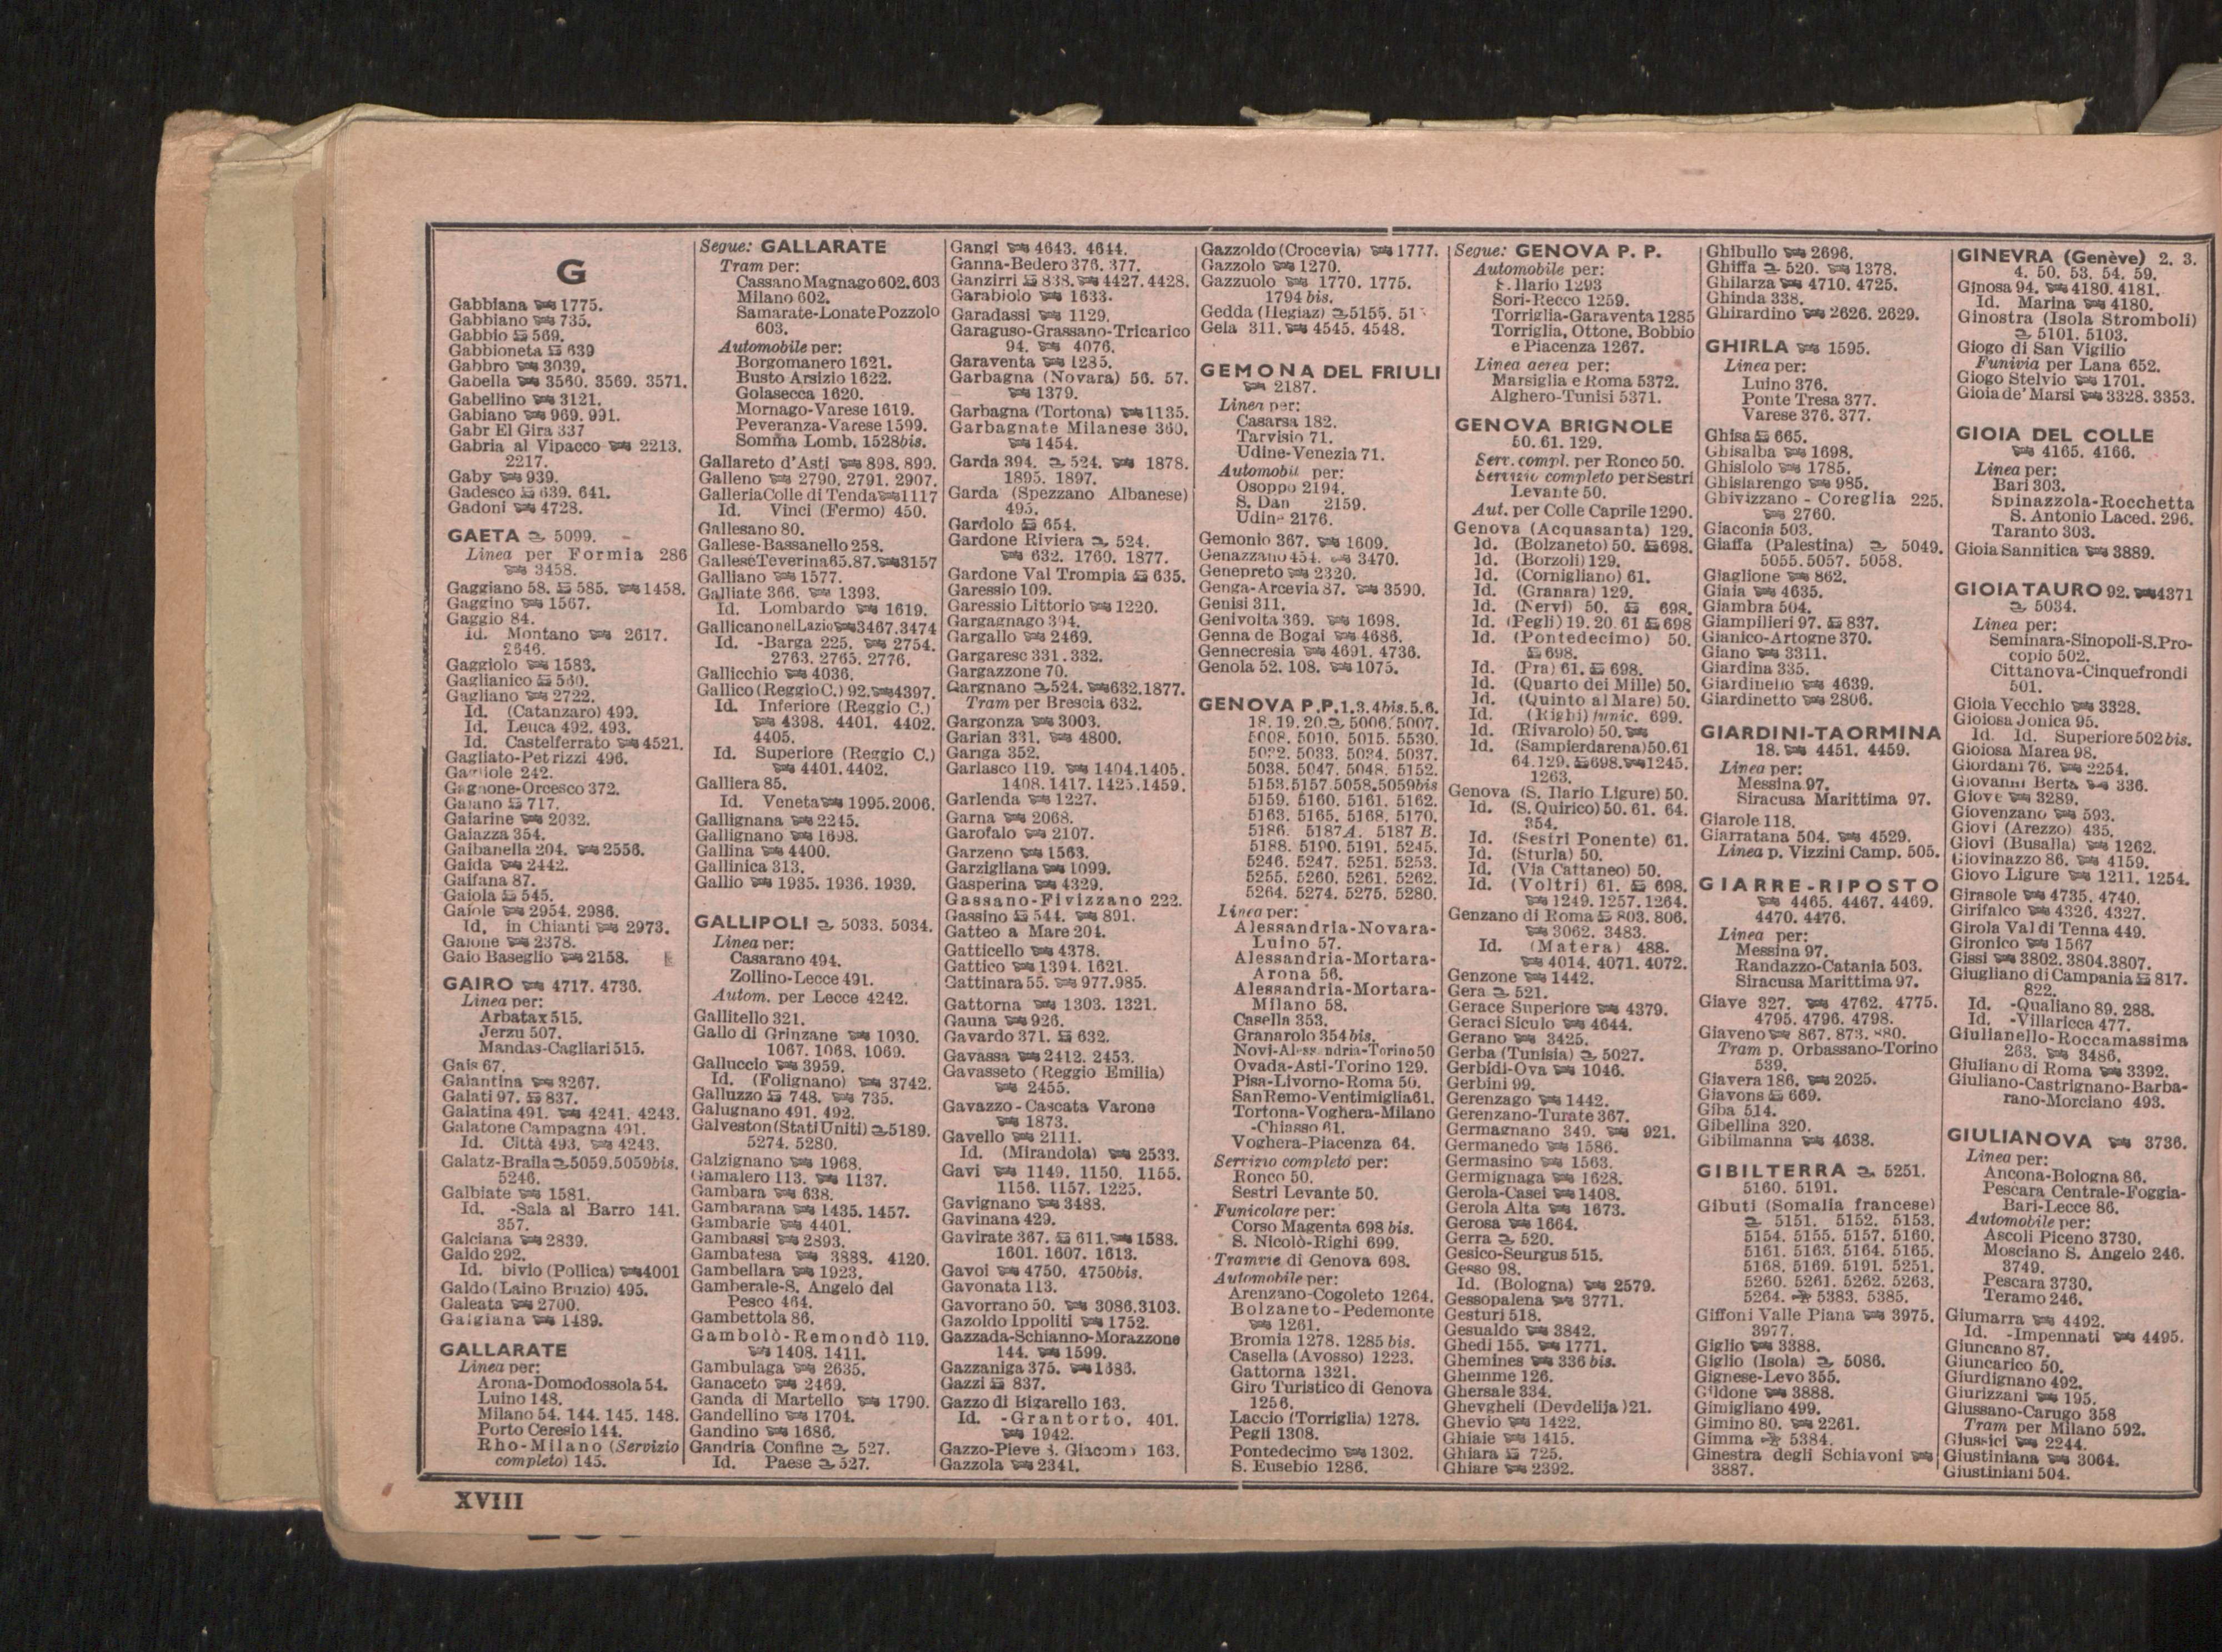 G
Gabbiana 1775.
Gabbiano 735.
Gabbio 569.
Gabbioneta 639
Gabbro 3039.
Gabella 3560. 3569. 3571.
Gabellino 3121.
Gabiano 969. 991.
Gabr El Gira 337
Gabria al Vipacco 2213.
2217.
Gaby 939.
Gadesco 639. 641.
Gadoni 4728.
GAETA 5099.
Linea per Formia 286
3458.
Gaggiano 58. 585. 1458.
Gaggino 1567.
Gaggio 84.
Id. Montano 2617.
2646.
Gaggiolo 1583.
Gaglianico 560.
Gagliano 2722.
Id. (Catanzaro) 499.
Id. Leuca 492. 493.
Id. Castelferrato 4521.
Gagliato-Petrizzi 496.
242.
Gagnone-Orcesco 372.
Gaiano 717.
Gaiarine 2032.
Gaiazza 354.
Gaibanella 204. 2556.
Gaida 2442.
Gaifana 87.
Gaiola 545.
Gaiole 2954. 2986.
Id. in Chianti 2973.
Gaione 2378.
Gaio Baseglio 2158.
GAIRO 4717. 4736.
Linea per:
Arbatax 515.
Jerzu 507.
Mandas-Cagliari 515.
Gais 67.
Galantina 3267.
Galati 97. 837.
Galatina 491. 4241. 4243.
Galatone Campagna 491.
Id. Città 493. 4243.
Galatz-Braila 5059. 5059bis.
5246.
Galbiate 1581.
Id. -Sala al Barro 141.
357.
Galciana 2839.
Galdo 292.
Id. bivio (Pollica) 4001
Galdo (Laino Bruzio) 495.
Galeata 2700.
Galgiana 1489.
GALLARATE
Linea per:
Arona-Domodossola 54.
Luino 148.
Milano 54. 144. 145. 148.
Porto Ceresio 144.
Rho-Milano (Servizio
completo) 145.
Segue: GALLARATE
Tram per:
Cassano Magnago 602. 603
Milano 602.
Samarate-Lonate Pozzolo
603.
Automobile per:
Borgomanero 1621.
Busto Arsizio 1622.
Golasecca 1620.
Mornago-Varese 1619.
Peveranza-Varese 1599.
Somma Lomb. 1528bis.
Gallareto d'Asti 898. 899.
Galleno 2790. 2791. 2907.
Galleria Colle di Tenda 1117
Id. Vinci (Fermo) 450.
Gallesano 80.
Gallese-Bassanello 258.
Gallese Teverina 65. 87. 3157
Galliano 1577.
Galliate 366. 1393.
Id. Lombardo 1619.
Gallicano nel Lazio 3467. 3474
Id. -Barga 225. 2754.
2763. 2765. 2776.
Gallicchio 4036.
Gallico (Reggio C.) 92. 4397.
Id. Inferiore (Reggio C.)
4398. 4401. 4402.
4405.
Id. Superiore (Reggio C.)
4401. 4402.
Galliera 85.
Id. Veneta 1995. 2006.
Gallignana 2245.
Gallignano 1698.
Gallina 4400.
Gallinica 313.
Gallio 1935. 1936. 1939.
GALLIPOLI 5033. 5034.
Linea per:
Casarano 494.
Zollino-Lecce 491.
Autom. per Lecce 4242.
Gallitello 321.
Gallo di Grinzane 1030.
1067. 1068. 1069.
Galluccio 3959.
Id. (Folignano) 3742.
Galluzzo 748. 735.
Galugnano 491. 492.
Galveston (Stati Uniti) 5189.
5274. 5280.
Galzignano 1968.
Gamalero 113. 1137.
Gambara 638.
Gambarana 1435. 1457.
Gambarie 4401.
Gambassi 2893.
Gambatesa 3888. 4120.
Gambellara 1923.
Gamberale-S. Angelo del
Pesco 464.
Gambettola 86.
Gambolò-Remondò 119.
1408. 1411.
Gambulaga 2635.
Ganaceto 2469.
Ganda di Martello 1790.
Gandellino 1704.
Gandino 1686.
Gandria Confine 527.
Id. Paese 527.
Gangi 4643. 4644.
Ganna-Bedero 376. 377.
Ganzirri 838. 4427. 4428.
Garabiolo 1633.
Garadassi 1129.
Garaguso-Grassano-Tricarico
94. 4076.
Garaventa 1285.
Garbagna (Novara) 56. 57.
1379.
Garbagna (Tortona) 1135.
Garbagnate Milanese 360.
1454.
Garda 394. 524. 1878.
1895. 1897.
Garda (Spezzano Albanese)
495.
Gardolo 654.
Gardone Riviera 524.
632. 1760. 1877.
Gardone Val Trompia 635.
Garessio 109.
Garessio Littorio 1220.
Gargagnago 394.
Gargallo 2469.
Gargaresc 331. 332.
Gargazzone 70.
Gargnano 524. 632. 1877.
Tram per Brescia 632.
Gargonza 3003.
Garian 331. 4800.
Gariga 352.
Garlasco 119. 1404. 1405.
1408. 1417. 1425. 1459.
Garlenda 1227.
Garna 2068.
Garofalo 2107.
Garzeno 1563.
Garzigliana 1099.
Gasperina 4329.
Gassano-Fivizzano 222.
Gassino 544. 891.
Gatteo a Mare 204.
Gatticello 4378.
Gattico 1394. 1621.
Gattinara 55. 977. 985.
Gattorna 1303. 1321.
Gauna 926.
Gavardo 371. 632.
Gavassa 2412. 2453.
Gavasseto (Reggio Emilia)
2455.
Gavazzo-Cascata Varone
1873.
Gavello 2111.
Id. (Mirandola) 2533.
Gavi 1149. 1150. 1155.
1156. 1157. 1225.
Gavignano 3488.
Gavinana 429.
Gavirate 367. 611. 1588.
1601. 1607. 1613.
Gavoi 4750. 4750bis.
Gavonata 113.
Gavorrano 50. 3086. 3103.
Gazoldo Ippoliti 1752.
Gazzada-Schianno-Morazzone
144. 1599.
Gazzaniga 375. 1686.
Gazzi 837.
Gazzo di Bigarello 163.
Id. -Grantorto. 401.
1942.
Gazzo-Pieve S. Giacomo 163.
Gazzola 2341.
Gazzoldo (Crocevia) 1777.
Gazzolo 1270.
Gazzuolo 1770. 1775.
1794 bis.
Gedda (Hegiaz) 5155. 51
Gela 311. 4545. 4548.
GEMONA DEL FRIULI
2187.
Linea per:
Casarsa 182.
Tarvisio 71.
Udine-Venezia 71.
Automobil per:
Osoppo 2194.
S. Dan 2159.
Udine 2176.
Gemonio 367. 1609.
Genazzano 454. 3470.
Genepreto 2320.
Genga-Arcevia 87. 3590.
Genisi 311.
Genivolta 369. 1698.
Genna de Bogai 4686.
Gennecresia 4691. 4736.
Genola 52. 108. 1075.
GENOVA P.P. 1. 3. 4bis. 5. 6.
18. 19. 20. 5006. 5007.
5008. 5010. 5015. 5530.
5022. 5033. 5034. 5037.
5038. 5047. 5048. 5152.
5153. 5157. 5058. 5059bis
5159. 5160. 5161. 5162.
5163. 5165. 5168. 5170.
5186. 5187A. 5187 B.
5188. 5190. 5191. 5245.
5246. 5247. 5251. 5253.
5255. 5260. 5261. 5262.
5264. 5274. 5275. 5280.
Linea per:
Alessandria-Novara-
Luino 57.
Alessandria-Mortara-
Arona 56.
Alessandria-Mortara-
Milano 58.
Casella 353.
Granarolo 354bis.
Novi-Alessandria-Torino 50
Ovada-Asti-Torino 129.
Pisa-Livorno-Roma 50.
San Remo-Ventimiglia 61.
Tortona-Voghera-Milano
-Chiasso 61.
Voghera-Piacenza 64.
Servizio completo per:
Ronco 50.
Sestri Levante 50.
Funicolare per:
Corso Magenta 698 bis.
S. Nicolò-Righi 699.
Tramvie di Genova 698.
Automobile per:
Arenzano-Cogoleto 1264.
Bolzaneto-Pedemonte
1261.
Bromia 1278. 1285 bis.
Casella (Avosso) 1223.
Gattorna 1321.
Giro Turistico di Genova
1256.
Laccio (Torriglia) 1278.
Pegli 1308.
Pontedecimo 1302.
S. Eusebio 1286.
Segue: GENOVA P. P.
Automobile per:
S. Ilario 1293
Sori-Recco 1259.
Torriglia-Garaventa 1285
Torriglia, Ottone, Bobbio
e Piacenza 1267.
Linea aerea per:
Marsiglia e Roma 5372.
Alghero-Tunisi 5371.
GENOVA BRIGNOLE
50. 61. 129.
Serv. compl. per Ronco 50.
Servizio completo per Sestri
Levante 50.
Aut. per Colle Caprile 1290.
Genova (Acquasanta) 129.
Id. (Bolzaneto) 50. 698.
Id. (Borzoli) 129.
Id. (Cornigliano) 61.
Id. (Granara) 129.
Id. (Nervi) 50. 698.
Id. (Pegli) 19. 20. 61 698
Id. (Pontedecimo) 50.
698.
Id. (Pra) 61. 698.
Id. (Quarto dei Mille) 50.
Id. (Quinto al Mare) 50.
Id. (Righi) funic. 699.
Id. (Rivarolo) 50.
Id. (Sampierdarena) 50. 61
64. 129. 698. 1245.
1263.
Genova (S. Ilario Ligure) 50.
Id. (S. Quirico) 50. 61. 64.
354.
Id. (Sestri Ponente) 61.
Id. (Sturla) 50.
Id. (Via Cattaneo) 50.
Id. (Voltri) 61. 698.
1249. 1257. 1264.
Genzano di Roma 803. 806.
3062. 3483.
Id. (Matera) 488.
4014. 4071. 4072.
Genzone 1442.
Gera 521.
Gerace Superiore 4379.
Geraci Siculo 4644.
Gerano 3425.
Gerba (Tunisia) 5027.
Gerbidi-Ova 1046.
Gerbini 99.
Gerenzago 1442.
Gerenzano-Turate 367.
Germagnano 349. 921.
Germanedo 1586.
Germasino 1563.
Germignaga 1628.
Gerola-Casei 1408.
Gerola Alta 1673.
Gerosa 1664.
Gerra 520.
Gesico-Seurgus 515.
Gesso 98.
Id. (Bologna) 2579.
Gessopalena 3771.
Gesturi 518.
Gesualdo 3842.
Ghedi 155. 1771.
Ghemines 336 bis.
Ghemme 126.
Ghersale 334.
Ghevgheli (Devdelija) 21.
Ghevio 1422.
Ghiaie 1415.
Ghiara 725.
Ghiare 2392.
Ghibullo 2696.
Ghiffa 520. 1378.
Ghilarza 4710. 4725.
Ghinda 338.
Ghirardino 2626. 2629.
GHIRLA 1595.
Linea per:
Luino 376.
Ponte Tresa 377.
Varese 376. 377.
Ghisa 665.
Ghisalba 1698.
Ghislolo 1785.
Ghislarengo 985.
Ghivizzano - Coreglia 225.
2760.
Giaconia 503.
Giaffa (Palestina) 5049.
5055. 5057. 5058.
Giaglione 862.
Giaia 4635.
Giambra 504.
Giampilieri 97. 837.
Gianico-Artogne 370.
Giano 3311.
Giardina 335.
Giardinello 4639.
Giardinetto 2806.
GIARDINI-TAORMINA
18. 4451. 4459.
Linea per:
Messina 97.
Siracusa Marittima 97.
Giarole 118.
Giarratana 504. 4529.
Linea p. Vizzini Camp. 505.
GIARRE-RIPOSTO
4465. 4467. 4469.
4470. 4476.
Linea per:
Messina 97.
Randazzo-Catania 503.
Siracusa Marittima 97.
Giave 327. 4762. 4775.
4795. 4796. 4798.
Giaveno 867. 873. 880.
Tram p. Orbassano-Torino
539.
Giavera 186. 2025.
Giavons 669.
Giba 514.
Gibellina 320.
Gibilmanna 4638.
GIBILTERRA 5251.
5160. 5191.
Gibuti (Somalia francese)
5151. 5152. 5153.
5154. 5155. 5157. 5160.
5161. 5163. 5164. 5165.
5168. 5169. 5191. 5251.
5260. 5261. 5262. 5263.
5264. 5383. 5385.
Giffoni Valle Piana 3975.
3977.
Giglio 3388.
Giglio (Isola) 5086.
Gignese-Levo 355.
Gildone 3888.
Gimigliano 499.
Gimino 80. 2261.
Gimma 5384.
Ginestra degli Schiavoni
3887.
GINEVRA (Genève) 2. 3.
4. 50. 53. 54. 59.
Ginosa 94. 4180. 4181.
Id. Marina 4180.
Ginostra (Isola Stromboli)
5101. 5103.
Giogo di San Vigilio
Funivia per Lana 652.
Giogo Stelvio 1701.
Gioia de' Marsi 3328. 3353.
GIOIA DEL COLLE
4165. 4166.
Linea per:
Bari 303.
Spinazzola-Rocchetta
S. Antonio Laced. 296.
Taranto 303.
Gioia Sannitica 3889.
GIOIA TAURO 92. 4371
5034.
Linea per:
Seminara-Sinopoli-S. Pro-
copio 502.
Cittanova-Cinquefrondi
501.
Gioia Vecchio 3328.
Gioiosa Jonica 95.
Id. Id. Superiore 502bis.
Gioiosa Marea 98.
Giordani 76. 2254.
Giovanni Berta 336.
Giove 3289.
Giovenzano 593.
Giovi (Arezzo) 435.
Giovi (Busalla) 1262.
Giovinazzo 86. 4159.
Giovo Ligure 1211. 1254.
Girasole 4735. 4740.
Girifalco 4326. 4327.
Girola Val di Tenna 449.
Gironico 1567
Gissi 3802. 3804. 3807.
Giugliano di Campania 817.
822.
Id. -Qualiano 89. 288.
Id. -Villaricca 477.
Giulianello-Roccamassima
263. 3486.
Giuliano di Roma 3392.
Giuliano-Castrignano-Barba-
rano-Morciano 493.
GIULIANOVA 3736.
Linea per:
Ancona-Bologna 86.
Pescara Centrale-Foggia-
Bari-Lecce 86.
Automobile per:
Ascoli Piceno 3730.
Mosciano S. Angelo 246.
3749.
Pescara 3730.
Teramo 246.
Giumarra 4492.
Id. -Impennati 4495.
Giuncano 87.
Giuncarico 50.
Giurdignano 492.
Giurizzani 195.
Giussano-Carugo 358
Tram per Milano 592.
Giussici 2244.
Giustiniana 3064.
Giustiniani 504.
XVIII